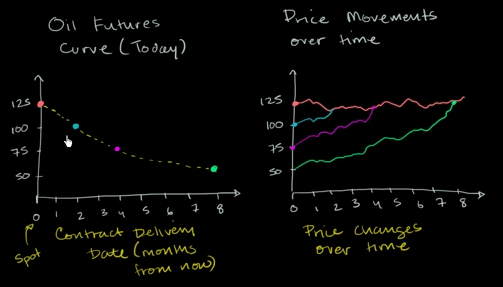 Oil Futures
Curve (Today)
125
100
75
50
0 1 2 3 4 5 6 7 8
spot
Contract Delivery
Date (months
from now)
Price Movements
over time
125
100
75
50
0 1 2 3 4 5 6 7 8
Price changes
over time